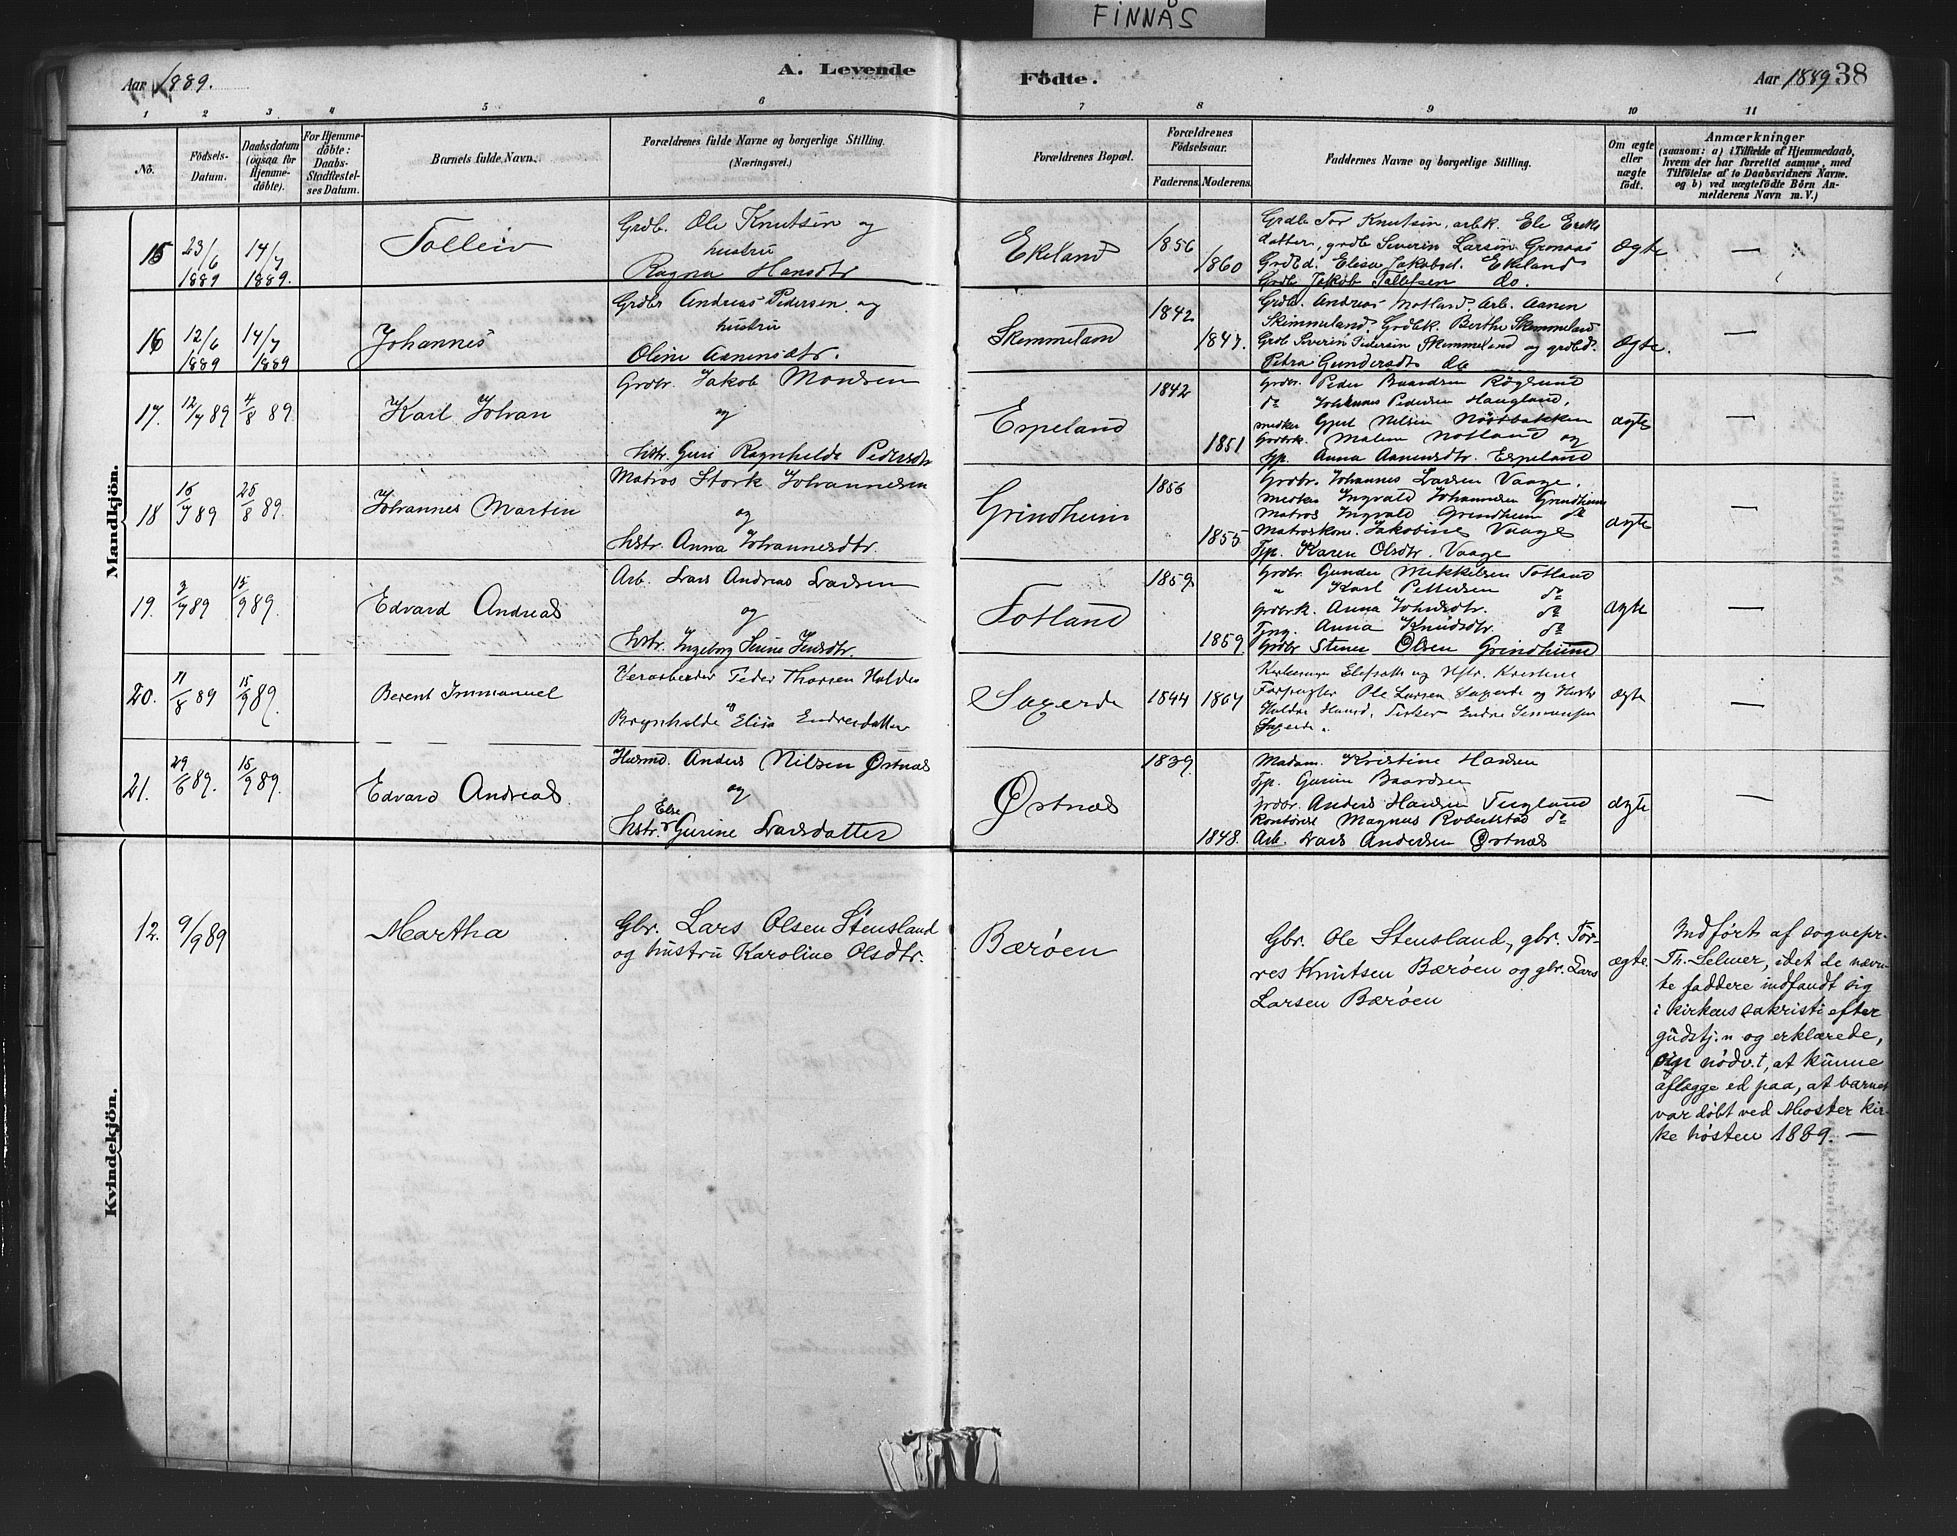 FINNÅS
Aar 1889.
A. Levende
Födte.
Aar 1889
38
1 2 3 4 5 6 7 8 9 10 11
No.
Födsels-
Datum.
Daabsdatum
(ogsaa for
Hjemme-
döbte).
For Hjemme-
döbte:
Daabs-
Stadfæstel-
ses Datum.
Barnets fulde Navn.
Forældrenes fulde Navne og borgerlige Stilling.
(Næringsvei.)
Forældrenes Bopæl.
Forældrenes
Födselsaar.
Faderens. Moderens.
Faddernes Navne og borgerlige Stilling.
Om ægte
eller
uægte
födt.
Anmærkninger
(saasom: a) i Tilfælde af Hjemmedaab,
hvem der har forrettet samme, med
Tilföielse af to Daabsvidners Navne.
og b) ved uægtefödte Börn An-
melderens Navn m. V.)
Mandkjön.
15
23/6
1889
14/7
1889.
Tolleiv
Grdb. Ole Knutsen og
hustru
Ragna Hansdtr
Ekeland
1856
1860
Grdb Tor Knutsen, arbk. Ele Eriks
datter, grdb Severin Larsen Grønaas
Grdbd. Elisa Jakobsd. Ekeland
Grdb Jakob Tollefsen do.
ægte
—
16
12/6
1889
14/7
1889
Johannes
Grdbr Andreas Pedersen og
hustru
Oline Aanensdtr.
Skimmeland
1842
1847.
Grdb. Andreas Notland, Arb. Aanen
Skimmeland, Grdbk. Berthe Skimmeland
Grdb Severin Pedersen Skimmeland og grdbd.
Petra Gundersdt do
ægte.
—
17.
12/7 89
4/8 89
Karl Johan
Grdbr. Jakob Monsen
og
hstr. Guri Ragnhilde Pedersdtr
Espeland
1842
1851
Grdbr. Peder Baardsen Røgsund
do Johannes Pedersen Haugland,
Nilsen Nøstbakken
Grdbrk. Malene Notland og
Tjp. Anna Aanensdtr. Espeland
ægte
—
18
15/7 89
25/8 89
Johannes Martin
Matros Stork Johannesen
og
hstr. Anna Johannesdtr.
Grindheim
1856
1855
Grdbr. Johannes Larsen Vaage,
Ingvald Johannesen Grindheim
Matros Ingvald Grindheim do
Matroskone Jakobine Vaage
Tjp. Karen Olsdtr. Vaage
ægte
—
19.
3/7 89
15/9 89.
Edvard Andreas
Arb. Lars Andreas Larsen
og
hstr. Ingeborg Serine Jensdtr.
Totland
1859
1859
Grdbr. Gunder Mikkelsen Totland
" Karl Pettersen do
Grdbrk. Anna Johnsdtr. do
Tjpg. Anna Knudsdtr. do
Grdbr Stener Olsen Grindheim
ægte
—
20.
11/8 89
15/9 89.
Berent Immanuel
Peder Thorsen Haldes
Brynhilde Elisa Endresdatter
Sagerde
1844
1867
Kirkesanger Elefsæth og Hstr. Kristine
Forpagter Ole Larsen Sagerde og Hustr
Huldre Hansd, Fisker Endre Simonsen
Sagerde.
ægte
—
21.
29/6 89.
15/9 89.
Edvard Andreas.
Husmd. Anders Nilsen Østnæs
og
hstr. Else Gurine Larsdatter
Østnæs
1839
1848.
Madam. Kristine Hansen
Tjp. Gurine Baardsen
Grdbr. Anders Hansen Tugland
Kontorist Magnus Robertstad do
Arb. Lars Andersen Østnæs
ægte
—
Kvindekjön.
12.
9/9 89
Martha
Gbr. Lars Olsen Stensland
og hustru Karoline Olsdtr.
Bærøen
Gbr. Ole Stensland, gbr. Tor-
res Knutsen Bærøen og gbr. Lars
Larsen Bærøen
ægte.
Indført af sognepr.
Th. Selmer, idet de nævn-
te faddere indfandt sig
i kirkens sakristi efter
gudstj.n og erklærede,
om nødv.t, at kunne
aflægge ed paa, at barnet
var døbt ved Moster kir-
ke høsten 1889. —